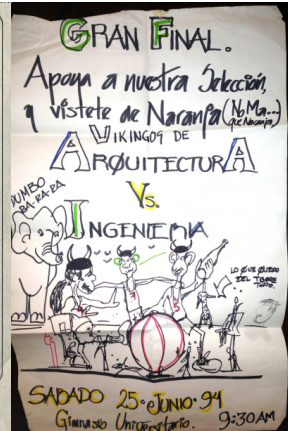 GRAN FINAL.
Apoya a nuestra Selección,
y vistete de Naranja (No Ma...)
que Naranja
VIKINGOS DE
ARQUITECTURA
Vs.
INGENIERIA
DUMBO
RA-RA-RA
LO QUE QUEDO
DEL TIGRE
SABADO 25·JUNIO·94
Gimnasio Universitario. 9:30AM